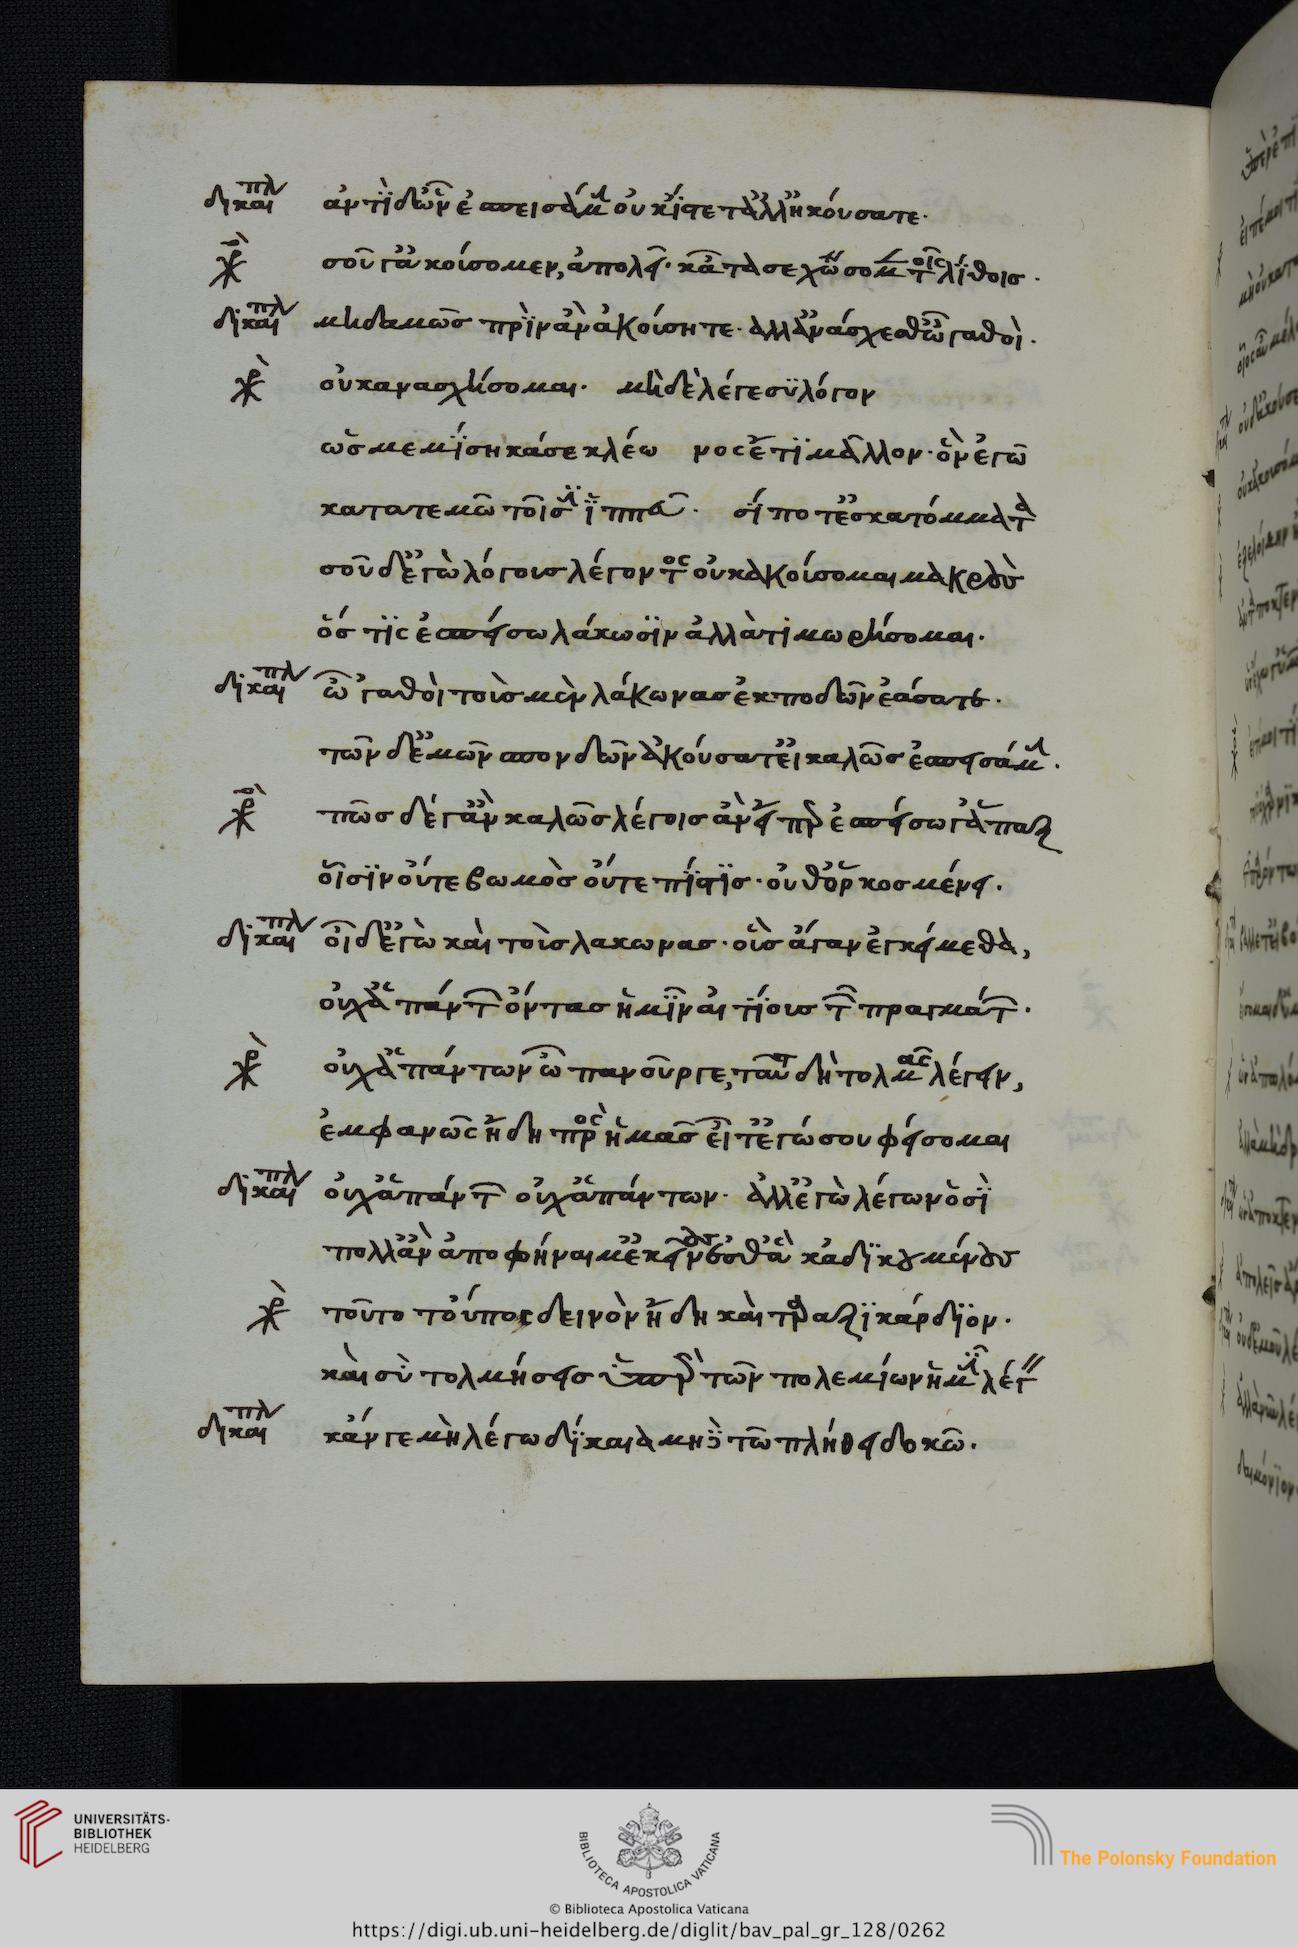 δικαιπλ ἀντὶ δ' ὧν ἐσπεισάμην οὐκ ἴστε τἀλλ' ἠκούσατε.
χορ σοῦ γ' ἀκούσομεν, ἀπολεῖ. κᾆτά σε χώσομεν τοῖς λίθοις.
δικαιπλ μηδαμῶς πρὶν ἂν ἀκούσητε. ἀλλ' ἀνάσχεσθ' ὦ 'γαθοί.
χορ οὐκ ἀνασχήσομαι. μηδὲ λέγε σὺ λόγον
ὡς μεμίσηκά σε κλέωνος ἔτι μᾶλλον. ὃν ἐγὼ
κατατεμῶ τοῖσιν ἱππεῦ. σί ποτ' ἐς καττύματα
σοῦ δ' ἐγὼ λόγους λέγοντος οὐκ ἀκούσομαι μακροὺς
ὅστις ἐσπείσω λάκωσιν ἀλλὰ τιμωρήσομαι.
δικαιπλ ὦ 'γαθοὶ τοὺς μὲν λάκωνας ἐκποδὼν ἐάσατε.
τῶν δ' ἐμῶν σπονδῶν ἀκούσατ' εἰ καλῶς ἐσπεισάμην.
χορ πῶς δέ γ' ἂν καλῶς λέγοις ἂν εἴπερ ἐσπείσω γ' ἅπαξ
οἷσιν οὔτε βωμὸς οὔτε πίστις. οὔθ' ὅρκος μένει.
δικαιπλ οἶδ' ἐγὼ καὶ τοὺς λάκωνας. οἷς ἄγαν ἐγκείμεθα,
οὐχ ἁπάντων ὄντας ἡμῖν αἰτίους τῶν πραγμάτων.
χορ οὐχ ἁπάντων ὦ πανοῦργε, ταῦτα δὴ τολμᾷς λέγειν,
ἐμφανῶς ἤδη πρὸς ἡμᾶς εἶτ' ἐγώ σου φείσομαι
δικαιπλ οὐχ ἁπάντων οὐχ ἁπάντων. ἀλλ' ἐγὼ λέγων ὁδὶ
πολλ' ἂν ἀποφήναιμ' ἐκείνους ἔσθ' ἃ κἀδικουμένους
χορ τοῦτο τοὖπος δεινὸν ἤδη καὶ ταραξικάρδιον.
καὶ σὺ τολμήσεις ὑπὲρ τῶν πολεμίων ἡμῖν λέγ
δικαιπλ κἄν γε μὴ λέγω δίκαια μηδὲ τῷ πλήθει δοκῶ.
UNIVERSITÄTS-
BIBLIOTHEK
HEIDELBERG
BIBLIOTECA APOSTOLICA VATICANA
The Polonsky Foundation
© Biblioteca Apostolica Vaticana
https://digi.ub.uni-heidelberg.de/diglit/bav_pal_gr_128/0262